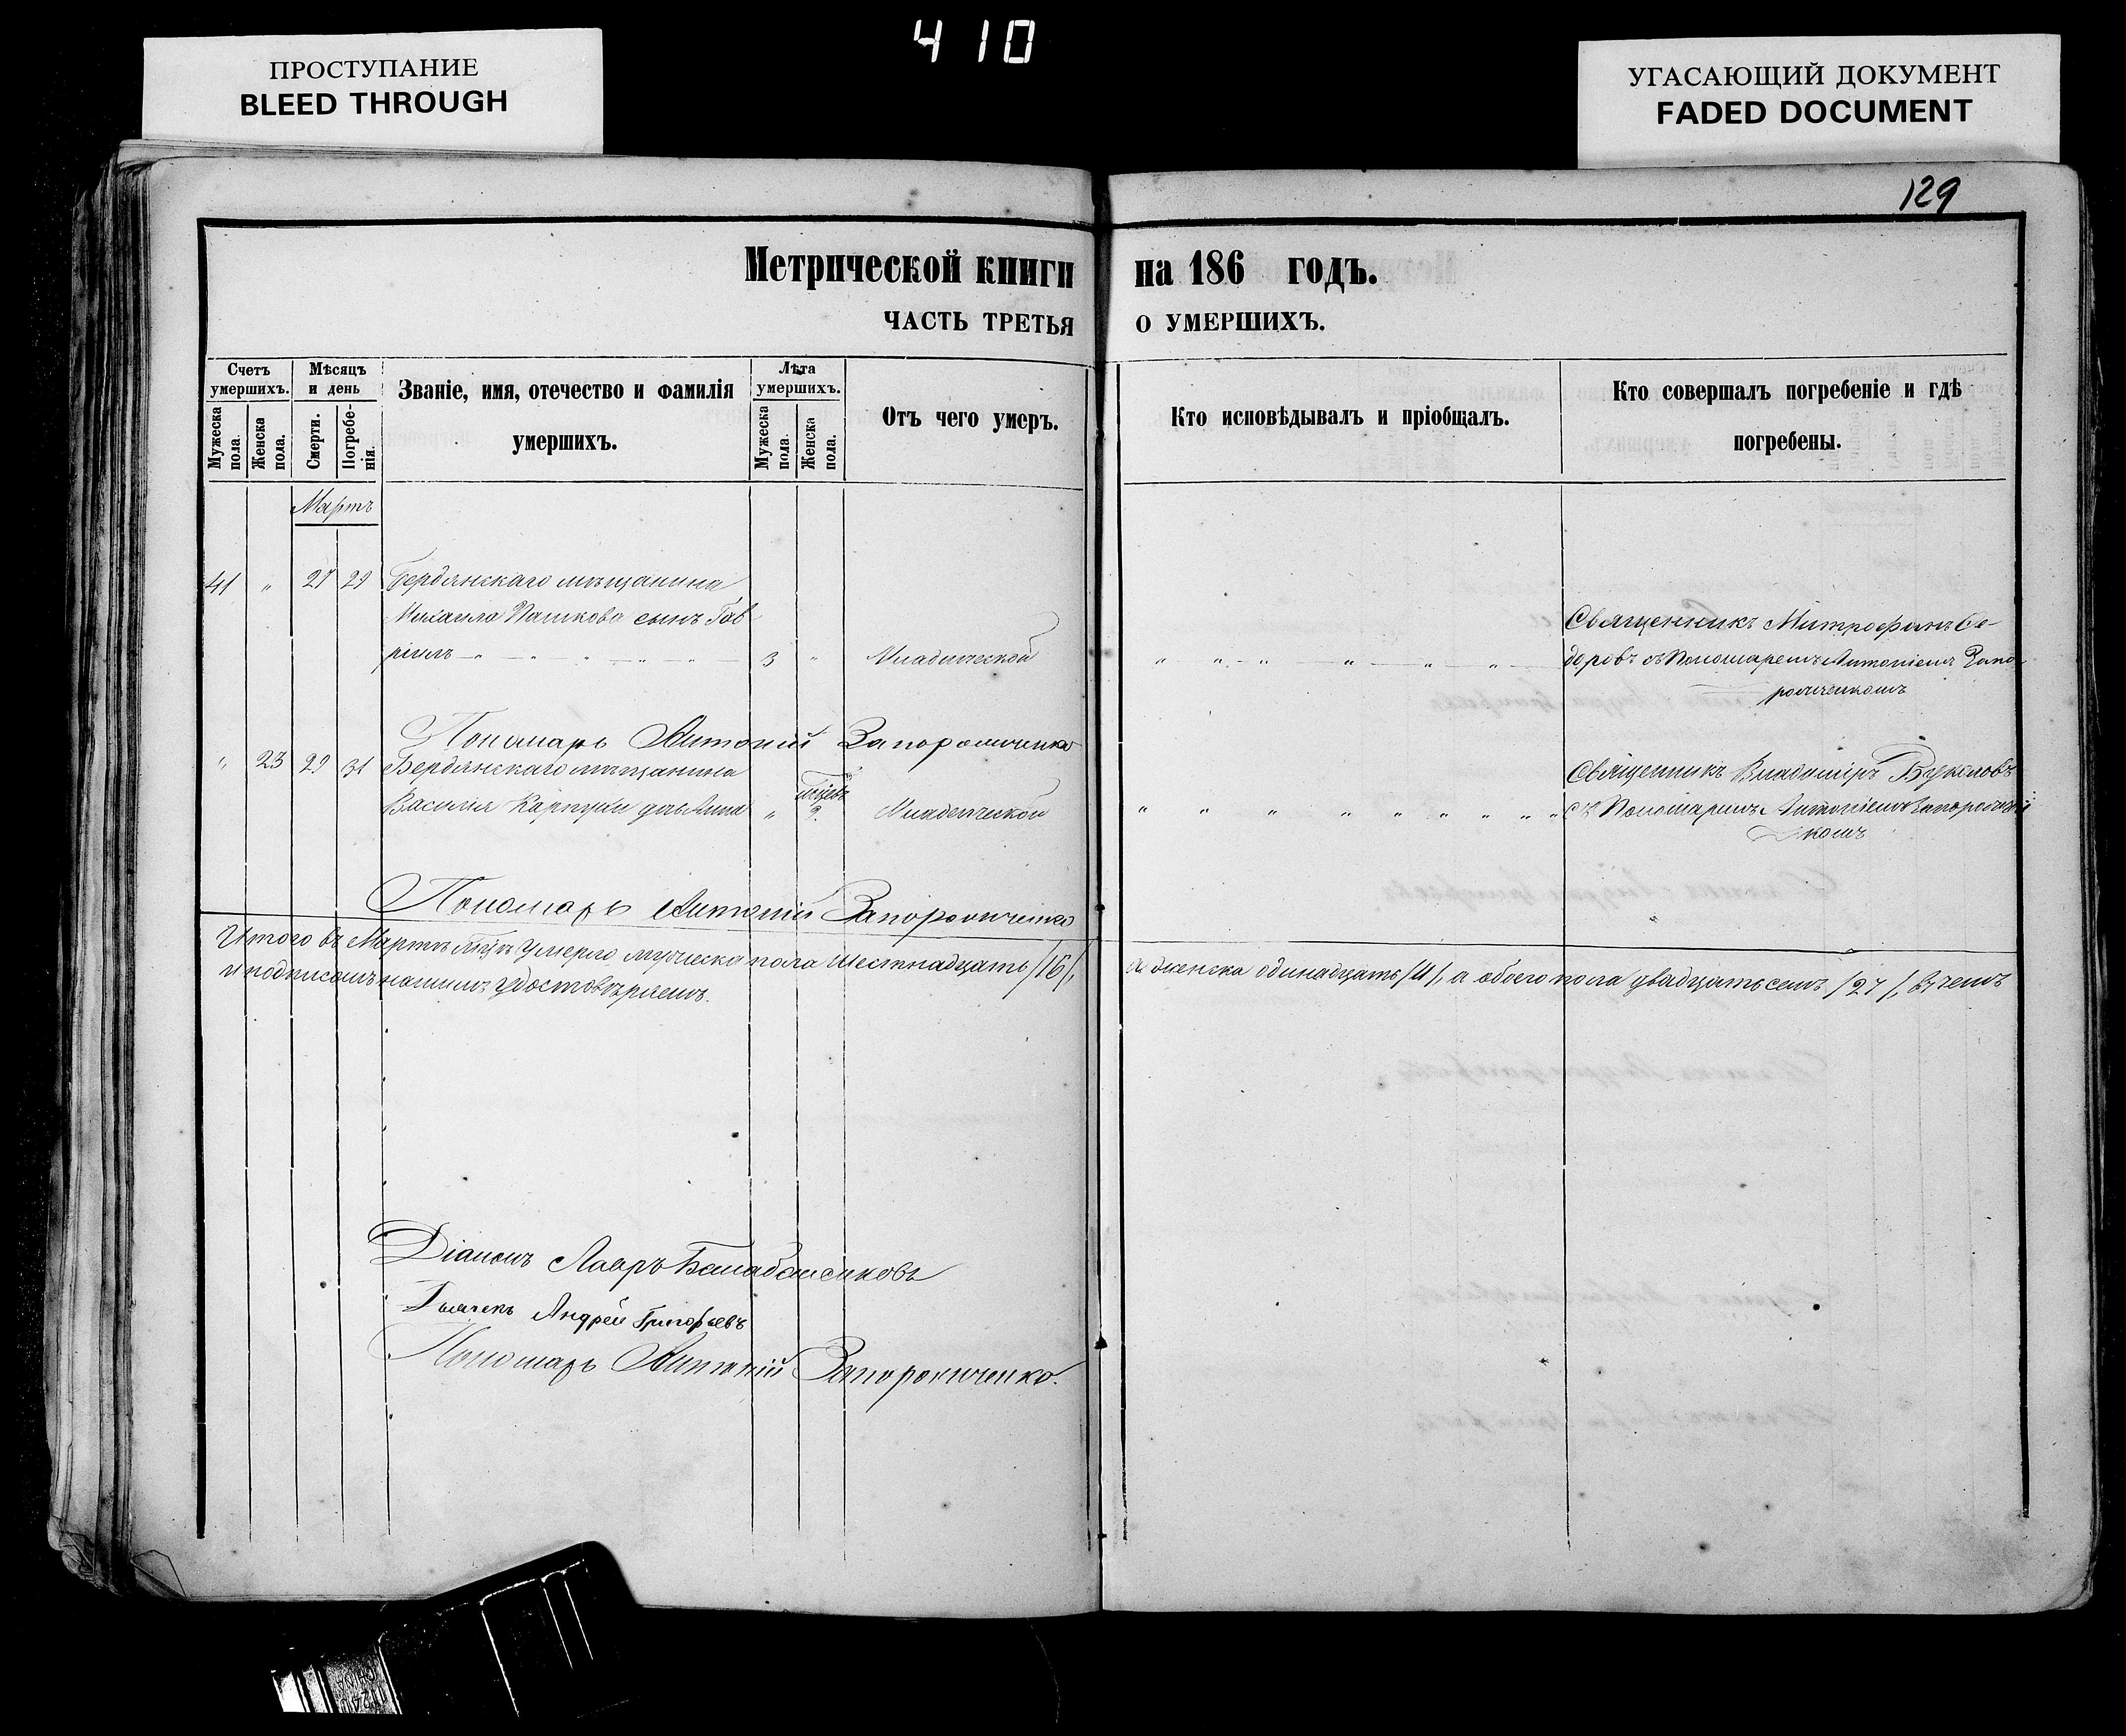 410
ПРОСТУПАНИЕ
BLEED THROUGH
УГАСАЮЩИЙ ДОКУМЕНТ
FADED DOCUMENT
129
Метрической книги на 186 годъ.
ЧАСТЬ ТРЕТЬЯ О УМЕРШИХЪ.
Счетъ умершихъ.
Мужеска пола.
Женска пола.
Мѣсяцъ и день
Смерти.
Погребенія.
Званіе, имя, отечество и фамилія
умершихъ.
Лѣта умершихъ.
Мужеска пола.
Женска пола.
Отъ чего умеръ.
Кто исповѣдывалъ и пріобщалъ.
Кто совершалъ погребеніе и гдѣ
погребены.
Мартъ
41 " 27 29 Бердянскаго мѣщанина
Михаила Пашкова сынъ Гав
ріилъ 3 " Младенческой
Священникъ Митрофанъ Ѳе-
доровъ съ Пономаремъ Антоніемъ Запо
рожченкомъ
Пономарь Антоній Запорожченко
" 23 29 31 Бердянскаго мѣщанина
Василія Карпуки дчь Анна " мѣсяцъ 2. Младенческой
Священникъ Владиміръ Буколовъ
съ Пономаремъ Антоніемъ Запорожчен
комъ
Пономарь Антоній Запорожченко
Итого въ Мартѣ мцѣ умерло мужеска пола шестнадцать /16/, а женска одинадцать /11/, а обоего пола двадцать семь /27/, въ чемъ
и подписомъ нашимъ удостовѣряемъ.
Діаконъ Лавръ Балабасенковъ
Дьячекъ Андрей Григорьевъ
Пономарь Антоній Запорожченко.